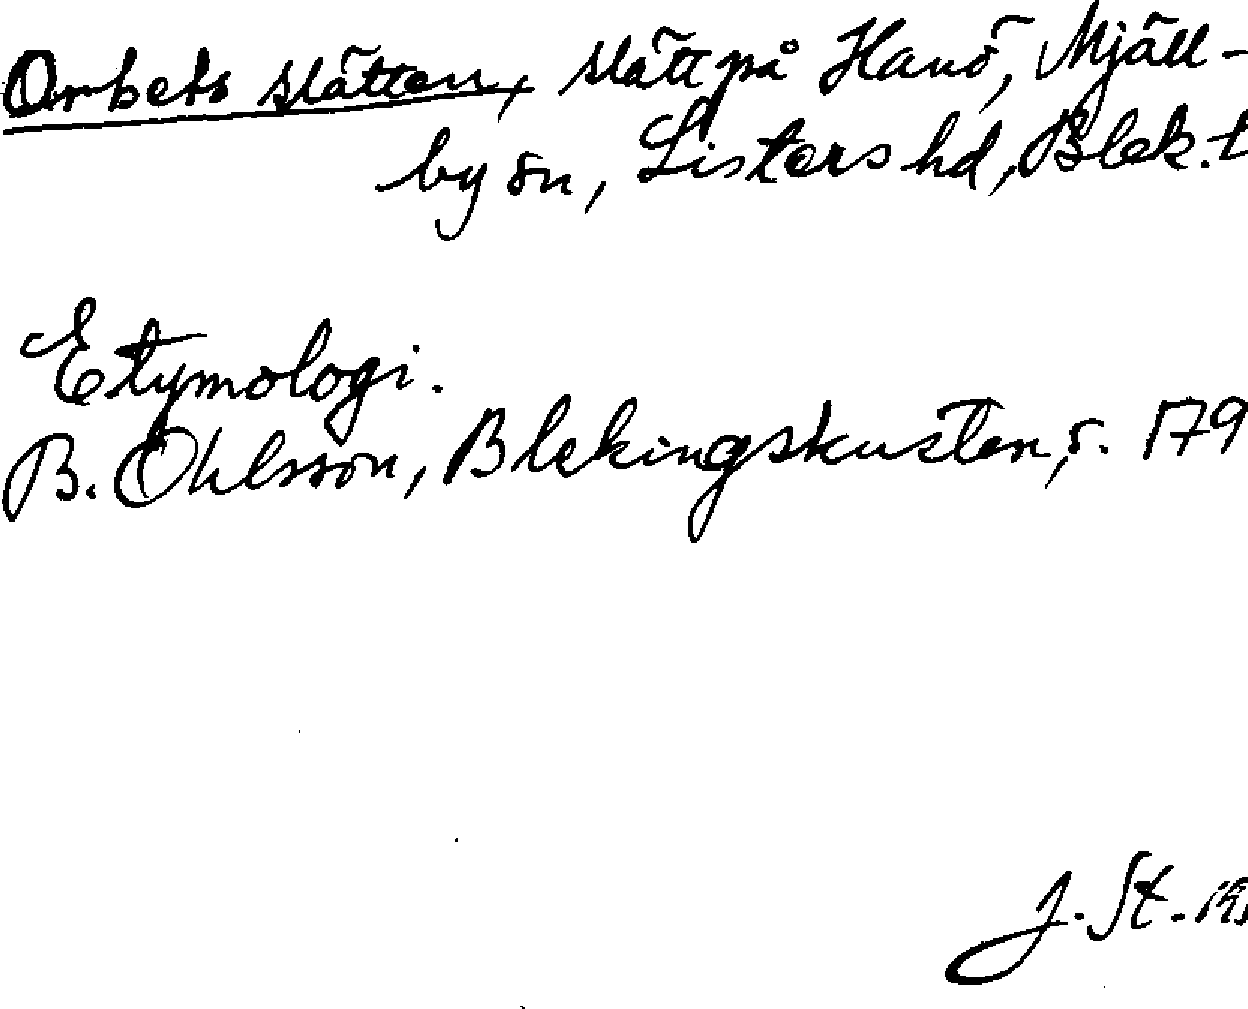 Ormbets slätten, slätt på Hanö, Mjäll-
by sn, Listers hd, Blek. l
Etymologi.
B. Ohlsson, Blekingskusten, s. 179
J. St.